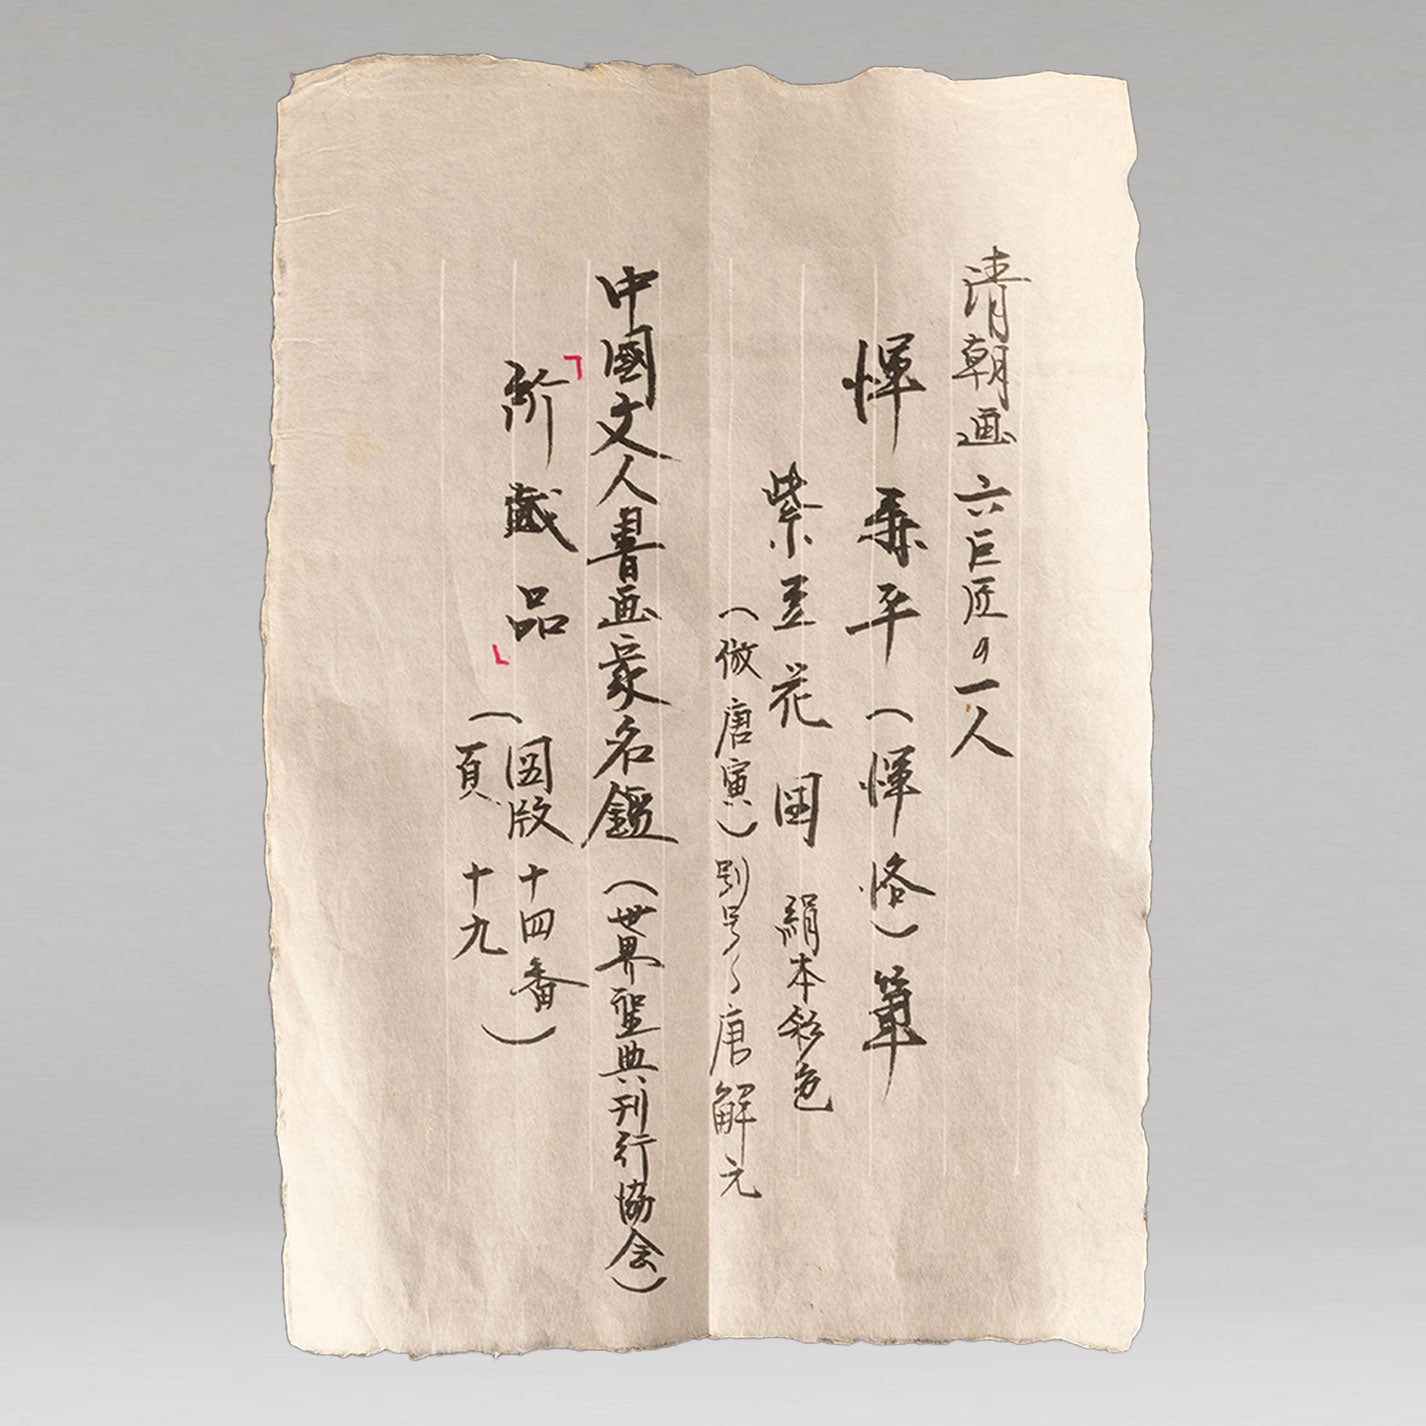 清朝画六巨匠の一人
惲寿平(惲恪)筆
紫豆花図 絹本彩色
(倣唐寅)別号々唐解元
中國文人書画家名鑑(世界聖典刊行協会)
「所蔵品」(図版十四番
頁十九)